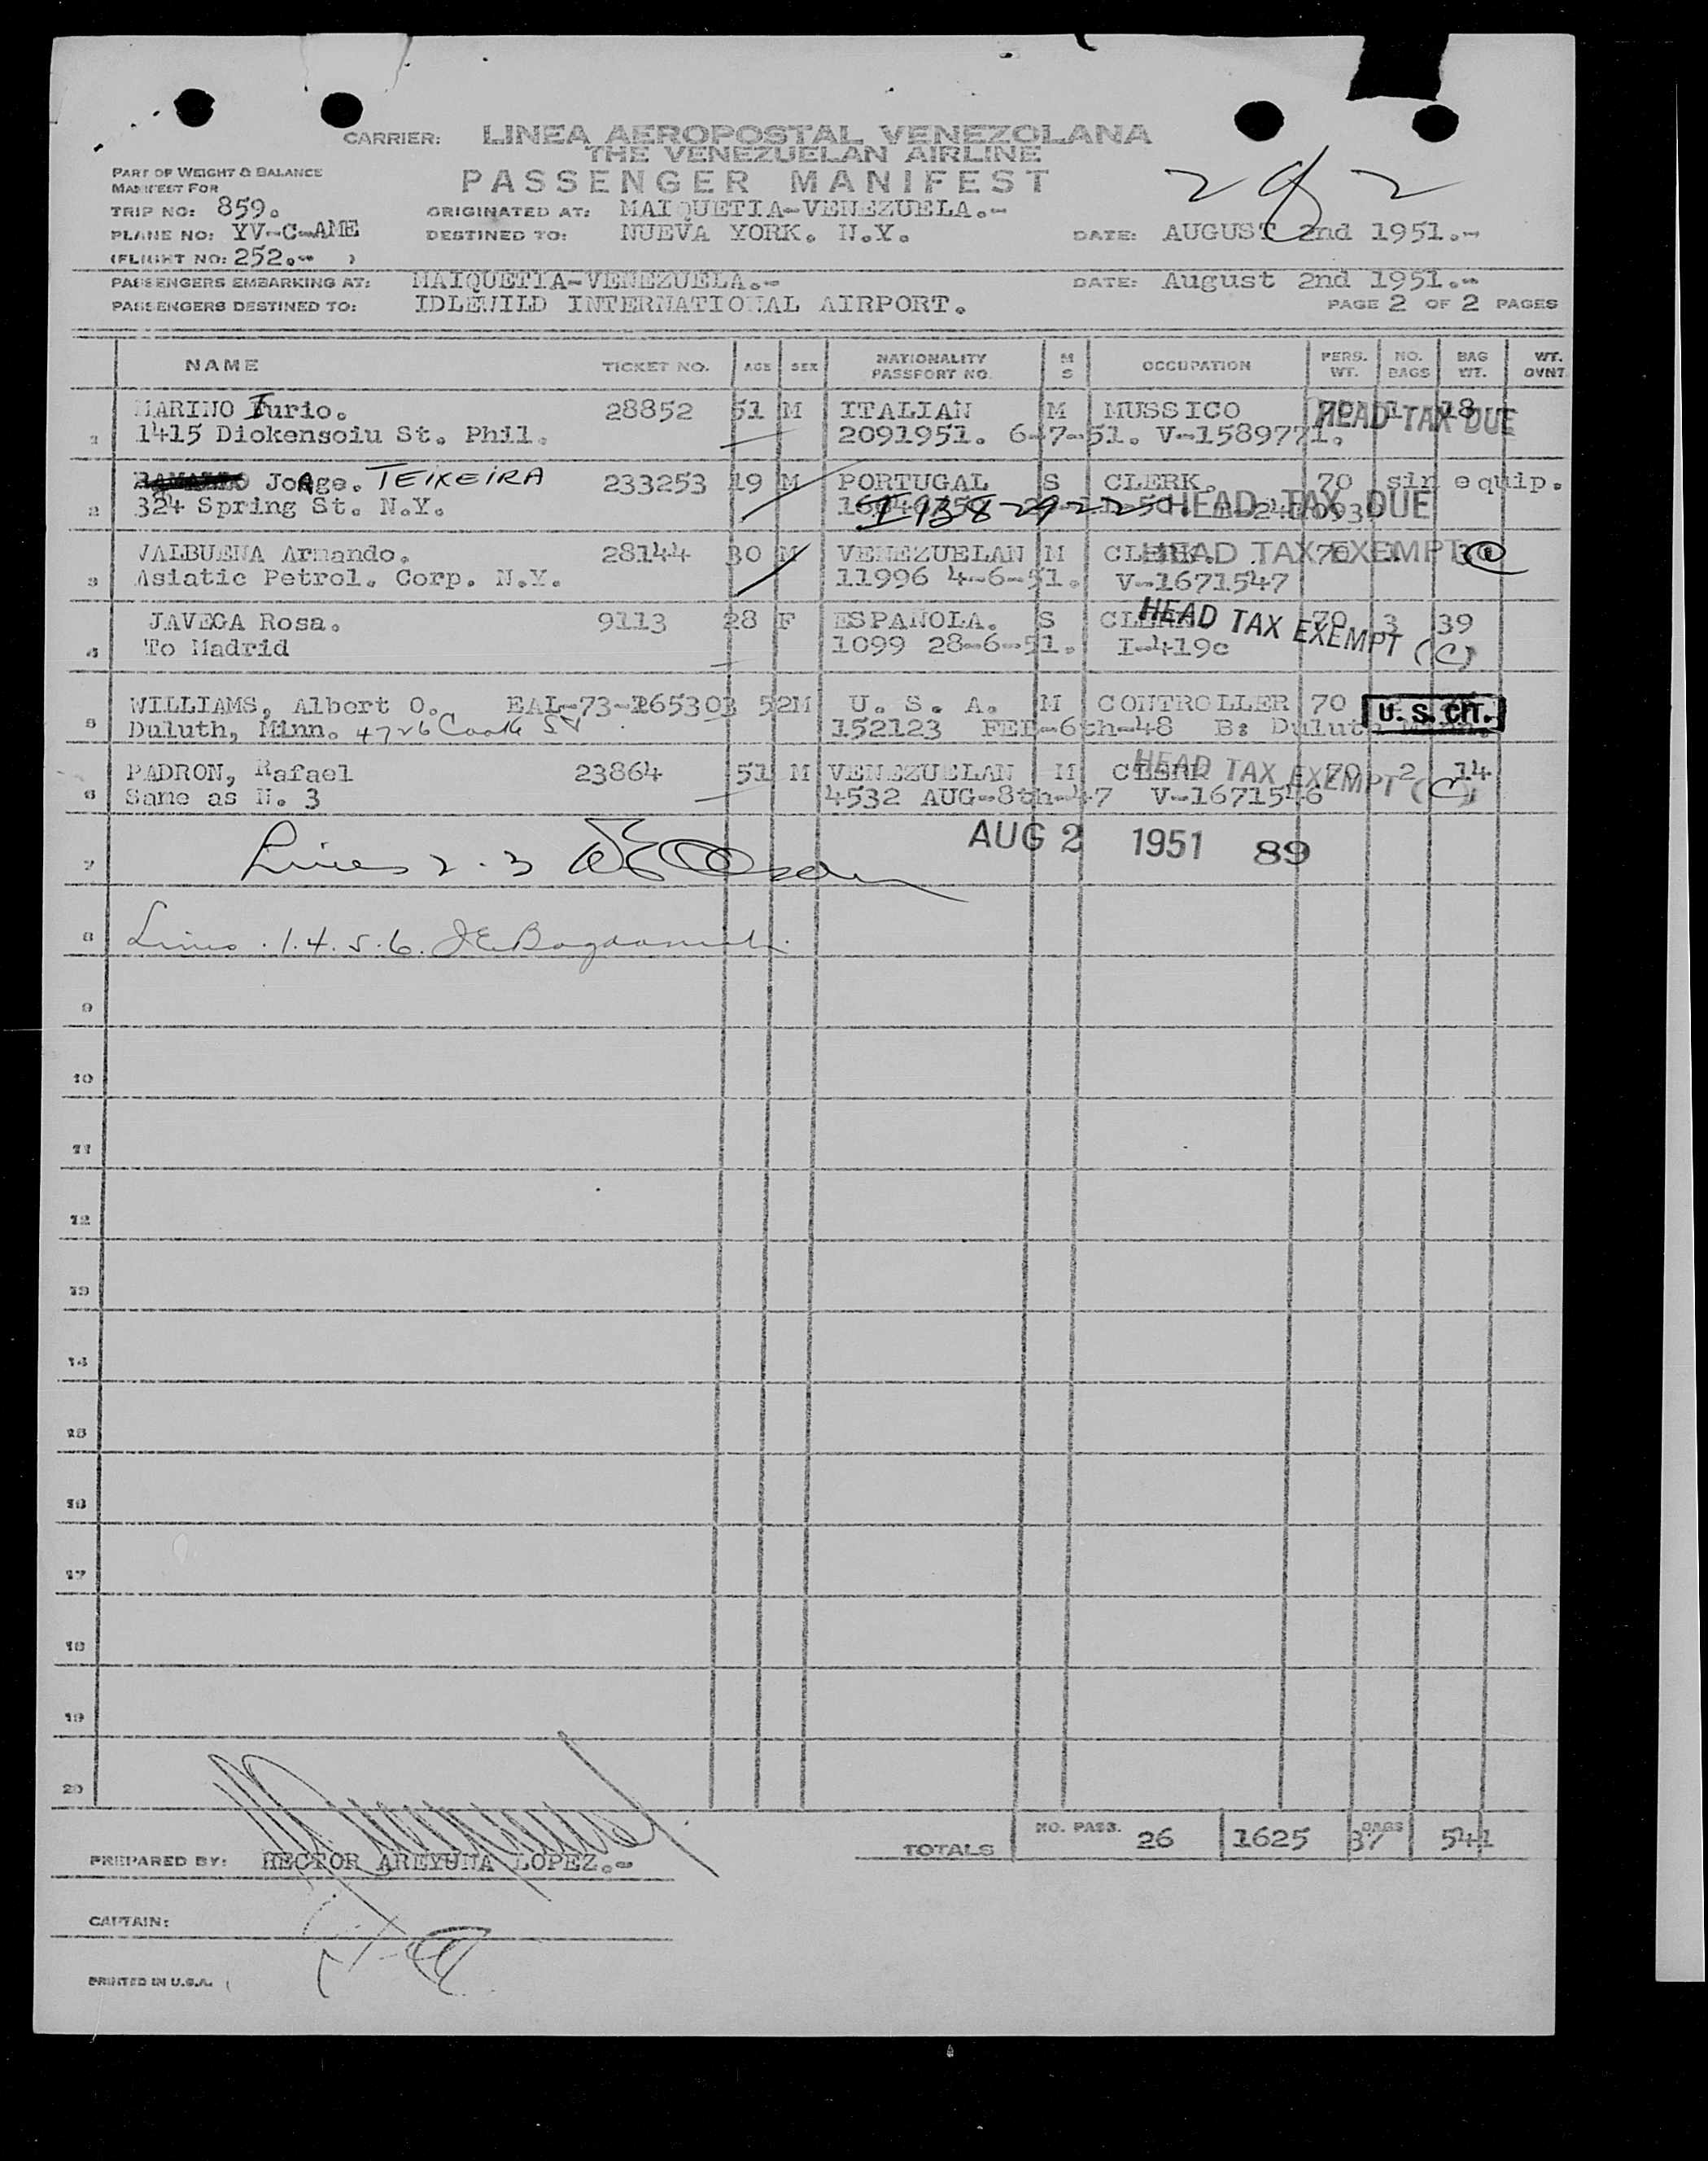 CARRIER: LINEA AEROPOSTAL VENEZOLANA
THE VENEZUELAN AIRLINE
PART OF WEIGHT & BALANCE
MANIFEST FOR
PASSENGER MANIFEST
2 of 2
TRIP NO: 859.
ORIGINATED AT: MAIQUETIA-VENEZUELA.-
PLANE NO: YV-C-AME
DESTINED TO: NUEVA YORK. N.Y.
DATE: AUGUST 2nd 1951.-
(FLIGHT NO: 252.- )
PASSENGERS EMBARKING AT: MAIQUETIA-VENEZUELA.-
DATE: August 2nd 1951.-
PASSENGERS DESTINED TO: IDLEWILD INTERNATIONAL AIRPORT.
PAGE 2 OF 2 PAGES
NAME TICKET NO. AGE SEX NATIONALITY PASSPORT NO. M S OCCUPATION PERS. WT. NO. BAGS BAG WT. WT. OVNT
1 MARINO Iurio. 28852 51 M ITALIAN M MUSSICO 70 1 18 HEAD TAX DUE
1415 Diokensoiu St. Phil. 2091951. 6-7-51. V-1589771.
2 Joage. TEIXEIRA 233253 19 M PORTUGAL S CLERK. 70 sin equip.
324 Spring St. N.Y. HEAD TAX DUE
3 VALBUENA Armando. 28144 30 M VENEZUELAN M CLERK. 70 HEAD TAX EXEMPT
Asiatic Petrol. Corp. N.Y. 11996 4-6-51. V-1671547
4 JAVEGA Rosa. 9113 28 F ESPAÑOLA. S CLERK. 70 3 39 HEAD TAX EXEMPT (C)
To Madrid 1099 28-6-51. I-419c
5 WILLIAMS, Albert O. EAL-73-265303 52M U. S. A. M CONTROLLER 70 U. S. CIT.
Duluth, Minn. 4726 Cooke St 152123 FEB-6th-48 B: Duluth Minn.
6 PADRON, Rafael 23864 51 M VENEZUELAN M CLERK 70 2 14 HEAD TAX EXEMPT (C)
Same as N. 3 4532 AUG-8th-47 V-1671546
AUG 2 1951 89
7 Lines 2-3
8 Lines .1.4.5.6.
9
10
11
12
13
14
15
16
17
18
19
20
TOTALS NO. PASS. 26 1625 BAGS 37 541
PREPARED BY: HECTOR AREYUNA LOPEZ.-
CAPTAIN:
PRINTED IN U.S.A.